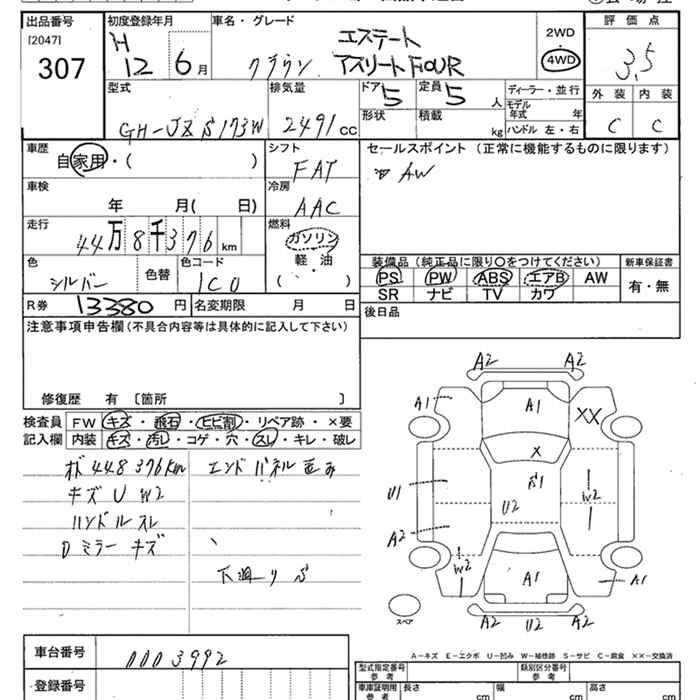 出品番号
[2047]
307
初度登録年月
H
12 6月
車名・グレード
エステート
クラウン アスリートFOUR
2WD
4WD
評価点
3.5
外装 内装
C C
型式
GH-JZS173W
排気量
2491 cc
ドア 5
定員 5 人
形状
積載 kg
ディーラー・並行
モデル年式 年
ハンドル 左・右
車歴
自家用・( )
シフト
FAT
セールスポイント (正常に機能するものに限ります)
AW
車検
年 月( 日)
冷房
AAC
走行
44万8千376km
燃料
ガソリン
軽・油
( )
色
シルバー
色替
色コード
1C0
装備品 (純正品に限り○をつけてください)
PS PW ABS エアB AW
SR ナビ TV カワ
新車保証書
有・無
R券 13380 円
名変期限 月 日
後日品
注意事項申告欄(不具合内容等は具体的に記入して下さい)
修復歴 有 [箇所 ]
検査員
記入欄
FW キズ・飛石・ヒビ割・リペア跡・×要
内装 キズ・汚レ・コゲ・穴・スレ・キレ・破レ
448376km エンドパネル歪み
キズ U W2
ハンドルスレ
Dミラーキズ
下廻り
A2 A2
A1 A1 XX
X
U1 U2 W2
A2
W2 A1 A1
A2 U2 A2
スペア
A-キズ E-エクボ U-凹み W-補修跡 S-サビ C-腐食 XX-交換済
車台番号 0003992
登録番号
型式指定番号
参考
類別区分番号
参考
車庫証明用
参考
長さ cm
幅 cm
高さ cm